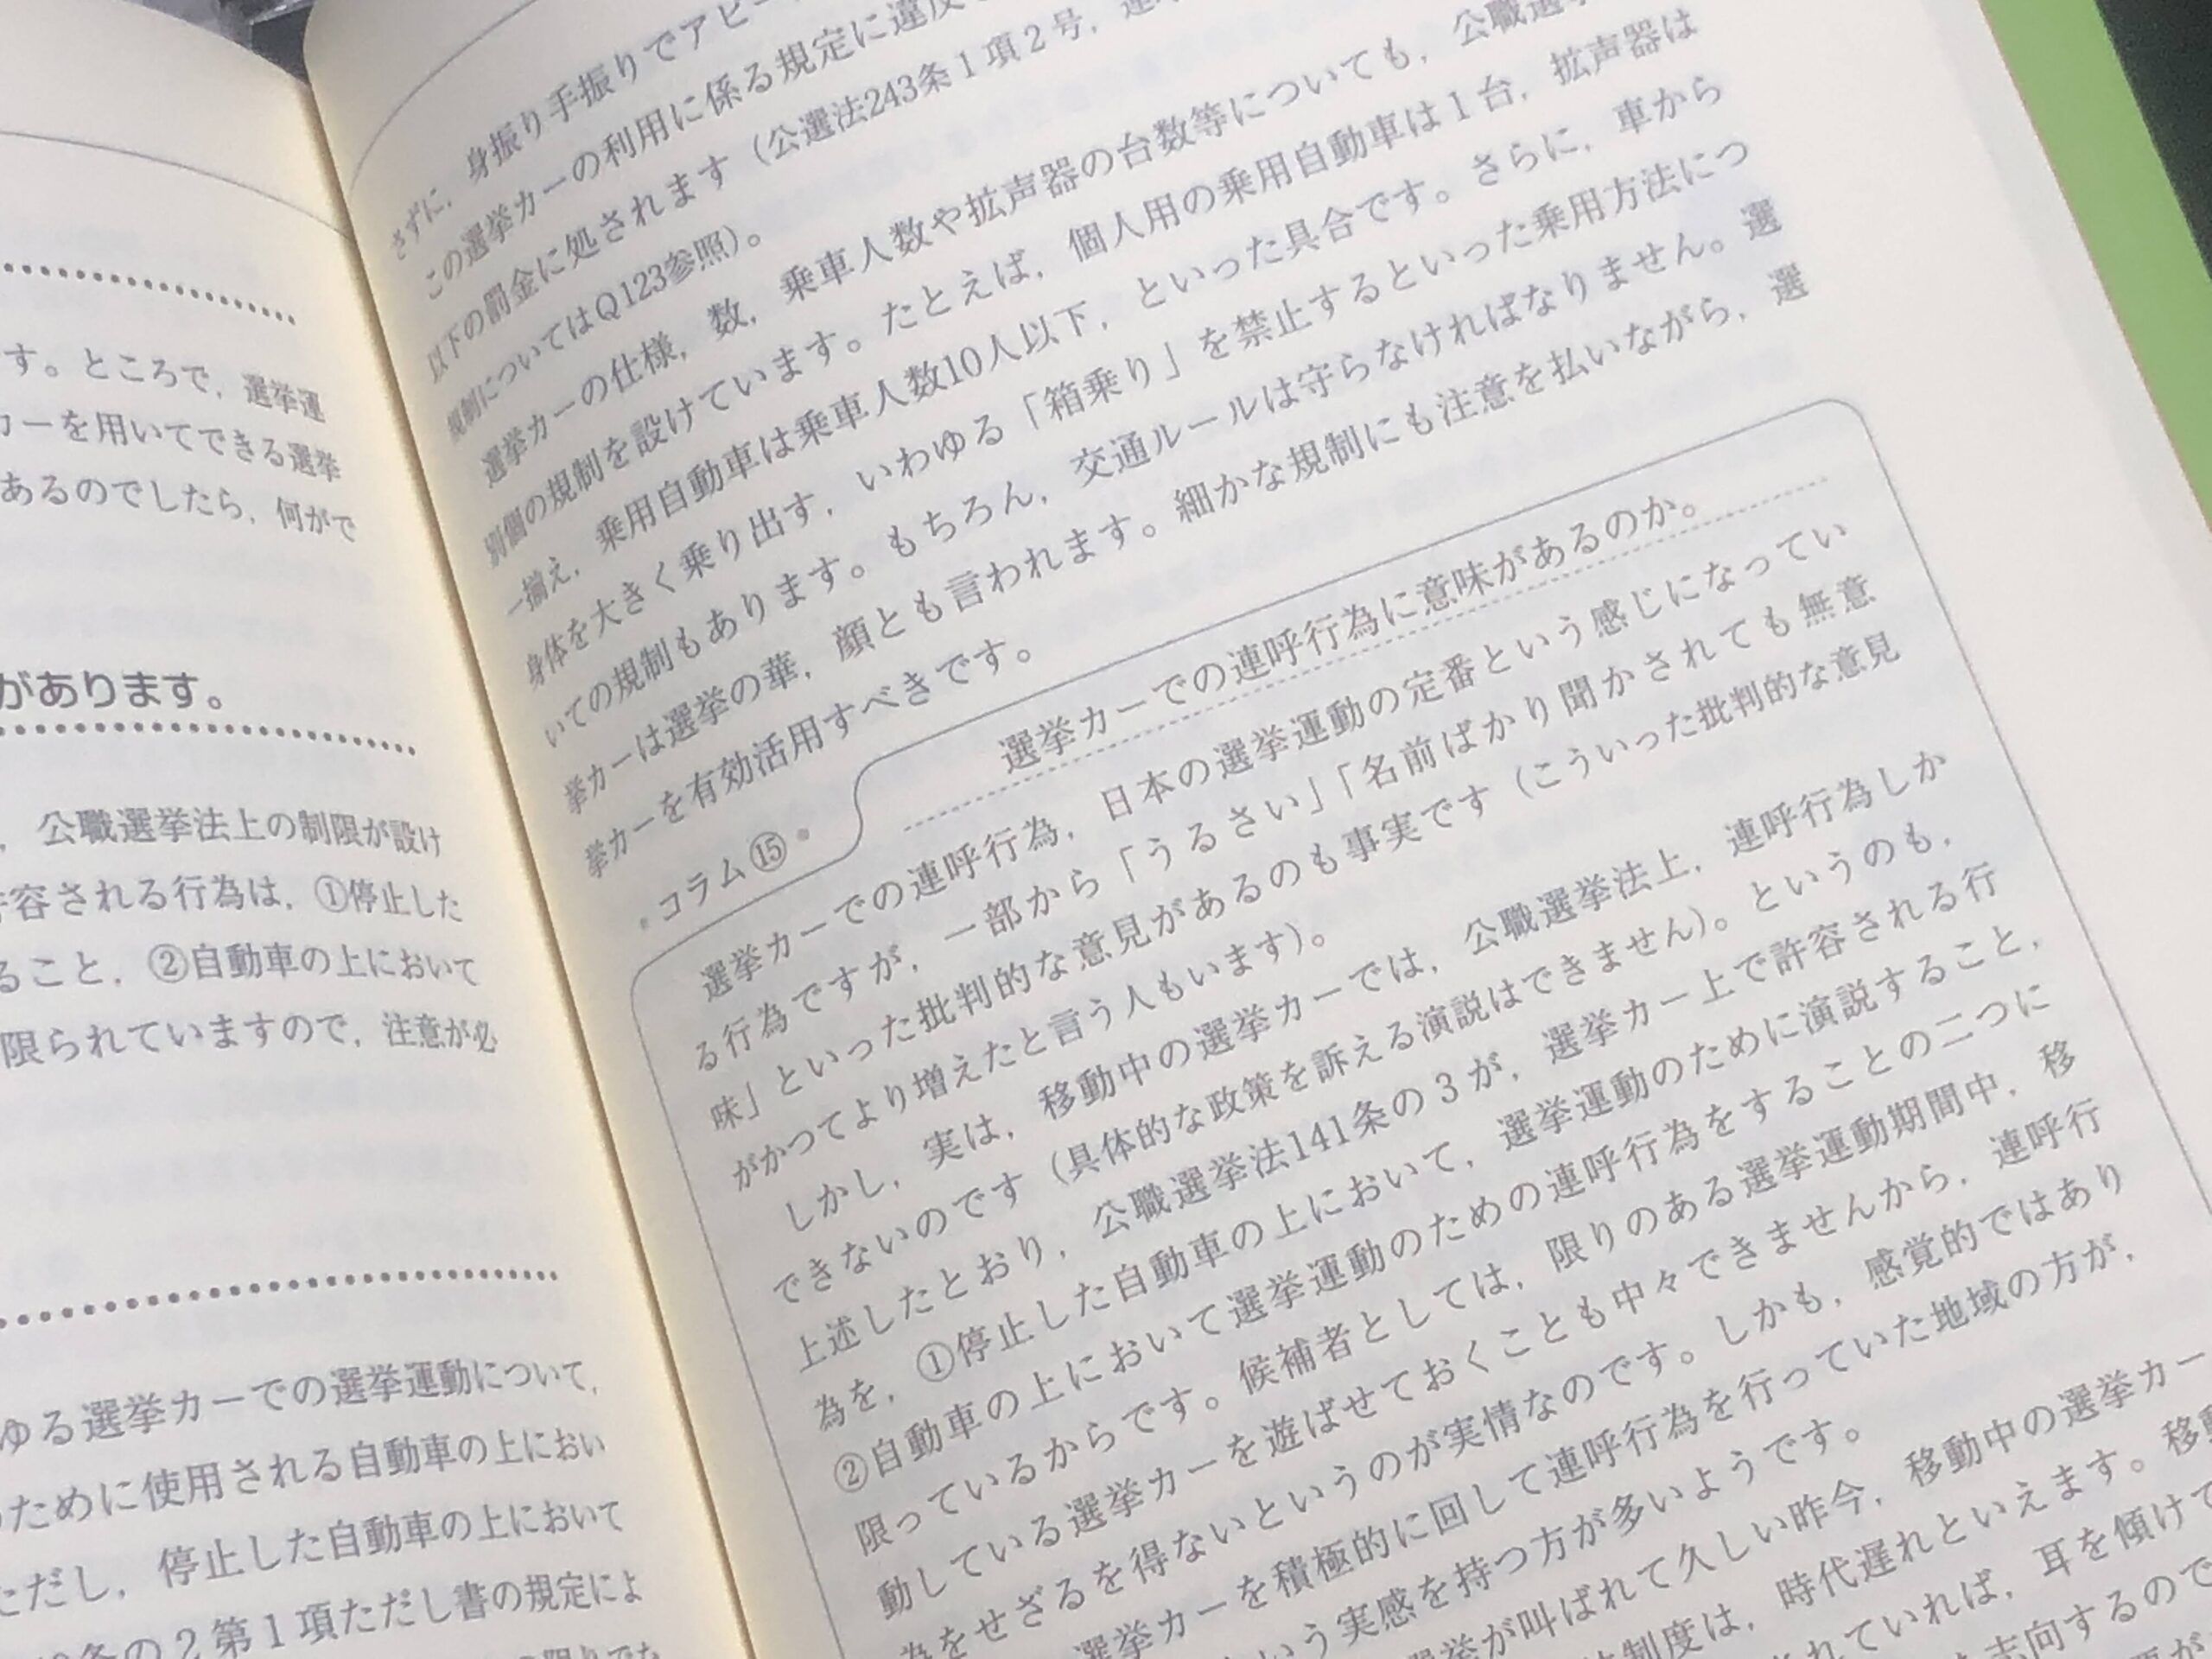 す。ところで，選挙運
カーを用いてできる選挙
あるのでしたら，何がで
があります。
，公職選挙法上の制限が設け
許容される行為は，①停止した
ること，②自動車の上において
限られていますので，注意が必
ゆる選挙カーでの選挙運動について，
ために使用される自動車の上におい
ただし，停止した自動車の上において
条の２第１項ただし書の規定によ
さずに，身振り手振りでアピー
この選挙カーの利用に係る規定に違反
以下の罰金に処されます（公選法243条１項２号，
規制についてはＱ123参照）。
選挙カーの仕様，数，乗車人数や拡声器の台数等についても，公職選挙
別個の規制を設けています。たとえば，個人用の乗用自動車は１台，拡声器は
一揃え，乗用自動車は乗車人数10人以下，といった具合です。さらに，車から
身体を大きく乗り出す，いわゆる「箱乗り」を禁止するといった乗用方法につ
いての規制もあります。もちろん，交通ルールは守らなければなりません。選
挙カーは選挙の華，顔とも言われます。細かな規制にも注意を払いながら，選
挙カーを有効活用すべきです。
コラム⑮
選挙カーでの連呼行為に意味があるのか。
選挙カーでの連呼行為，日本の選挙運動の定番という感じになってい
る行為ですが，一部から「うるさい」「名前ばかり聞かされても無意
味」といった批判的な意見があるのも事実です（こういった批判的な意見
がかつてより増えたと言う人もいます）。
しかし，実は，移動中の選挙カーでは，公職選挙法上，連呼行為しか
できないのです（具体的な政策を訴える演説はできません）。というのも，
上述したとおり，公職選挙法141条の３が，選挙カー上で許容される行
為を，①停止した自動車の上において，選挙運動のために演説すること，
②自動車の上において選挙運動のための連呼行為をすることの二つに
限っているからです。候補者としては，限りのある選挙運動期間中，移
動している選挙カーを遊ばせておくことも中々できませんから，連呼行
為をせざるを得ないというのが実情なのです。しかも，感覚的ではあり
選挙カーを積極的に回して連呼行為を行っていた地域の方が，
いう実感を持つ方が多いようです。
選挙が叫ばれて久しい昨今，移動中の選挙カー
制度は，時代遅れといえます。移動
れていれば，耳を傾けて
志向するので